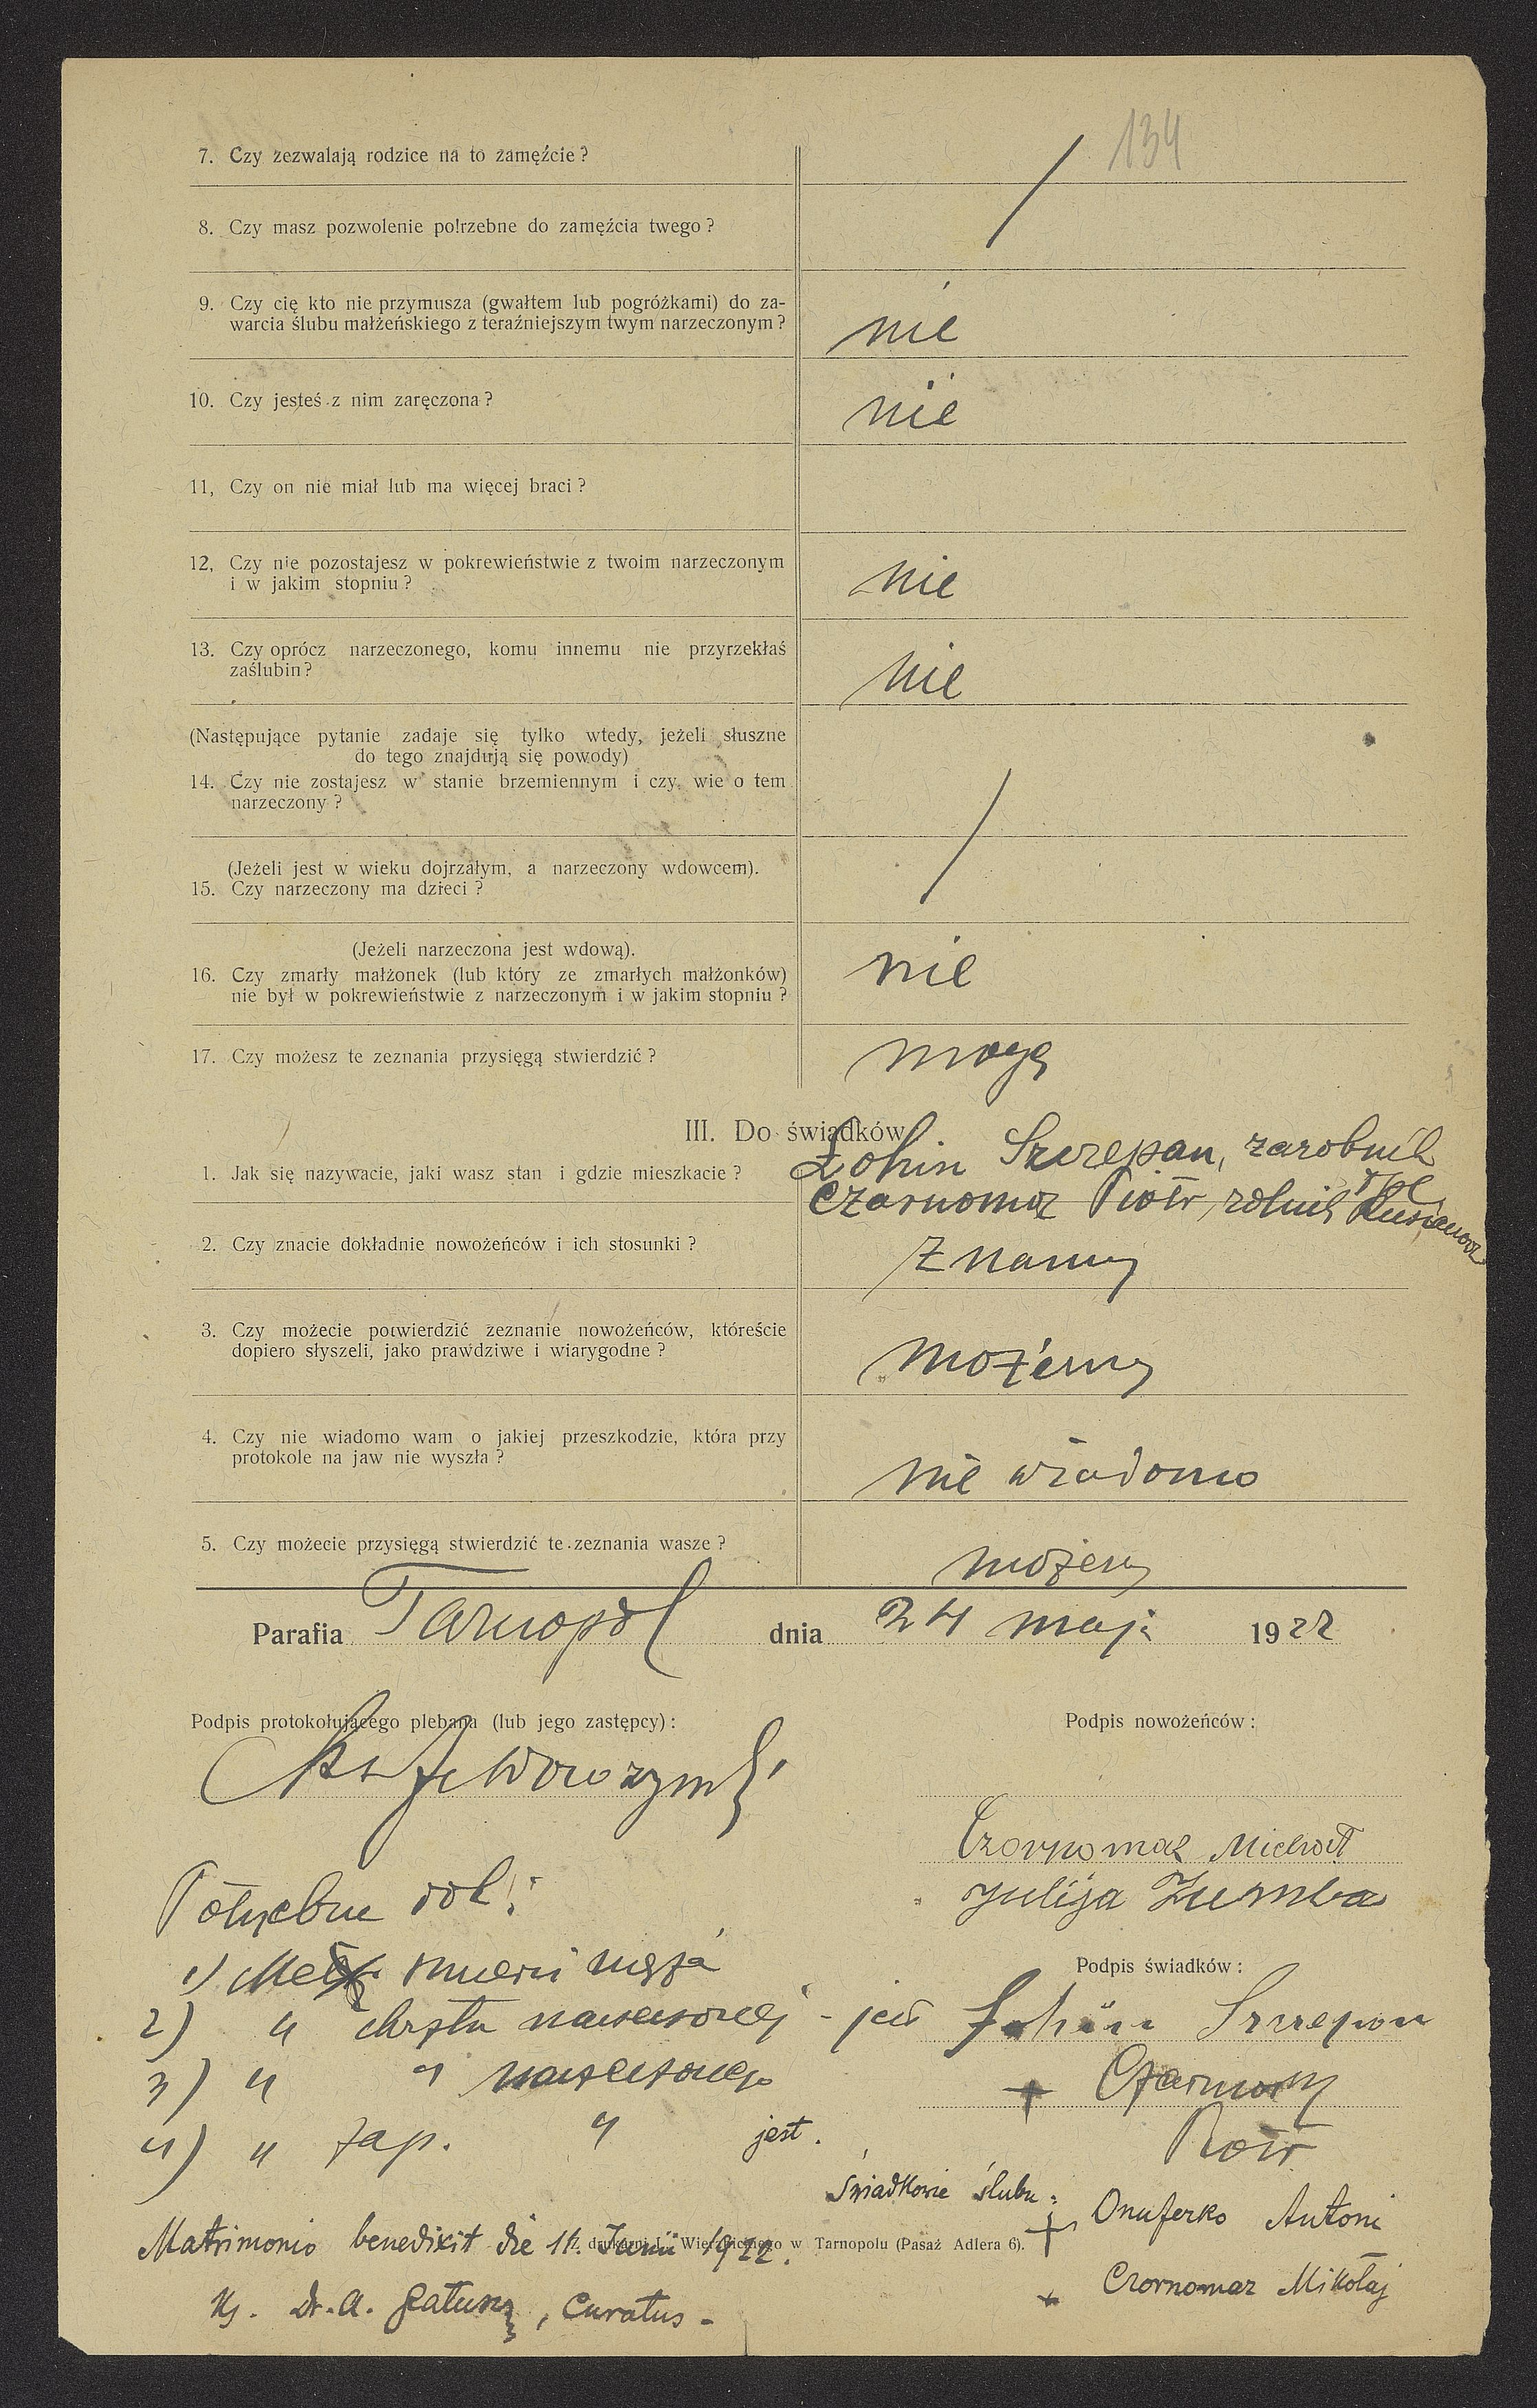 134
7. Czy zezwalają rodzice na to zamęźcie?
8. Czy masz pozwolenie potrzebne do zamęźcia twego?
9. Czy cię kto nie przymusza (gwałtem lub pogróżkami) do za-
warcia ślubu małżeńskiego z teraźniejszym twym narzeczonym?
nie
10. Czy jesteś z nim zaręczona?
nie
11, Czy on nie miał lub ma więcej braci?
12, Czy nie pozostajesz w pokrewieństwie z twoim narzeczonym
i w jakim stopniu?
nie
13. Czy oprócz narzeczonego, komu innemu nie przyrzekłaś
zaślubin?
nie
(Następujące pytanie zadaje się tylko wtedy, jeżeli słuszne
do tego znajdują się powody)
14. Czy nie zostajesz w stanie brzemiennym i czy wie o tem
narzeczony?
(Jeżeli jest w wieku dojrzałym, a narzeczony wdowcem).
15. Czy narzeczony ma dzieci?
(Jeżeli narzeczona jest wdową).
16. Czy zmarły małżonek (lub który ze zmarłych małżonków)
nie był w pokrewieństwie z narzeczonym i w jakim stopniu?
nie
17. Czy możesz te zeznania przysięgą stwierdzić?
mogę
III. Do świadków
1. Jak się nazywacie, jaki wasz stan i gdzie mieszkacie?
Szczepan, zarobnik
Czarnomaz Piotr, rolnik
2. Czy znacie dokładnie nowożeńców i ich stosunki?
Znamy
3. Czy możecie potwierdzić zeznanie nowożeńców, któreście
dopiero słyszeli, jako prawdziwe i wiarygodne?
możemy
4. Czy nie wiadomo wam o jakiej przeszkodzie, która przy
protokole na jaw nie wyszła?
nie wiadomo
5. Czy możecie przysięgą stwierdzić te zeznania wasze?
możemy
Parafia Tarnopol dnia 24 maja 1922
Podpis protokołującego plebana (lub jego zastępcy):
Podpis nowożeńców:
Czornomaz Michał
Julija Ziemba
Potrzebne dok:
1) Metr. śmierci męża
Podpis świadków:
2) " chrztu narzeczonej - jest
Szczepan
3) " " narzeczonego
+ Czarnomaz
4) " zap. " jest.
Piotr
Świadkowie ślubu:
+ Onuferko Antoni
Matrimonio benedixit die 11. Junii 1922.
Z drukarni L. Wierzbickiego w Tarnopolu (Pasaż Adlera 6).
+ Czornomaz Mikołaj
Ks. Dr. A. , Curatus -